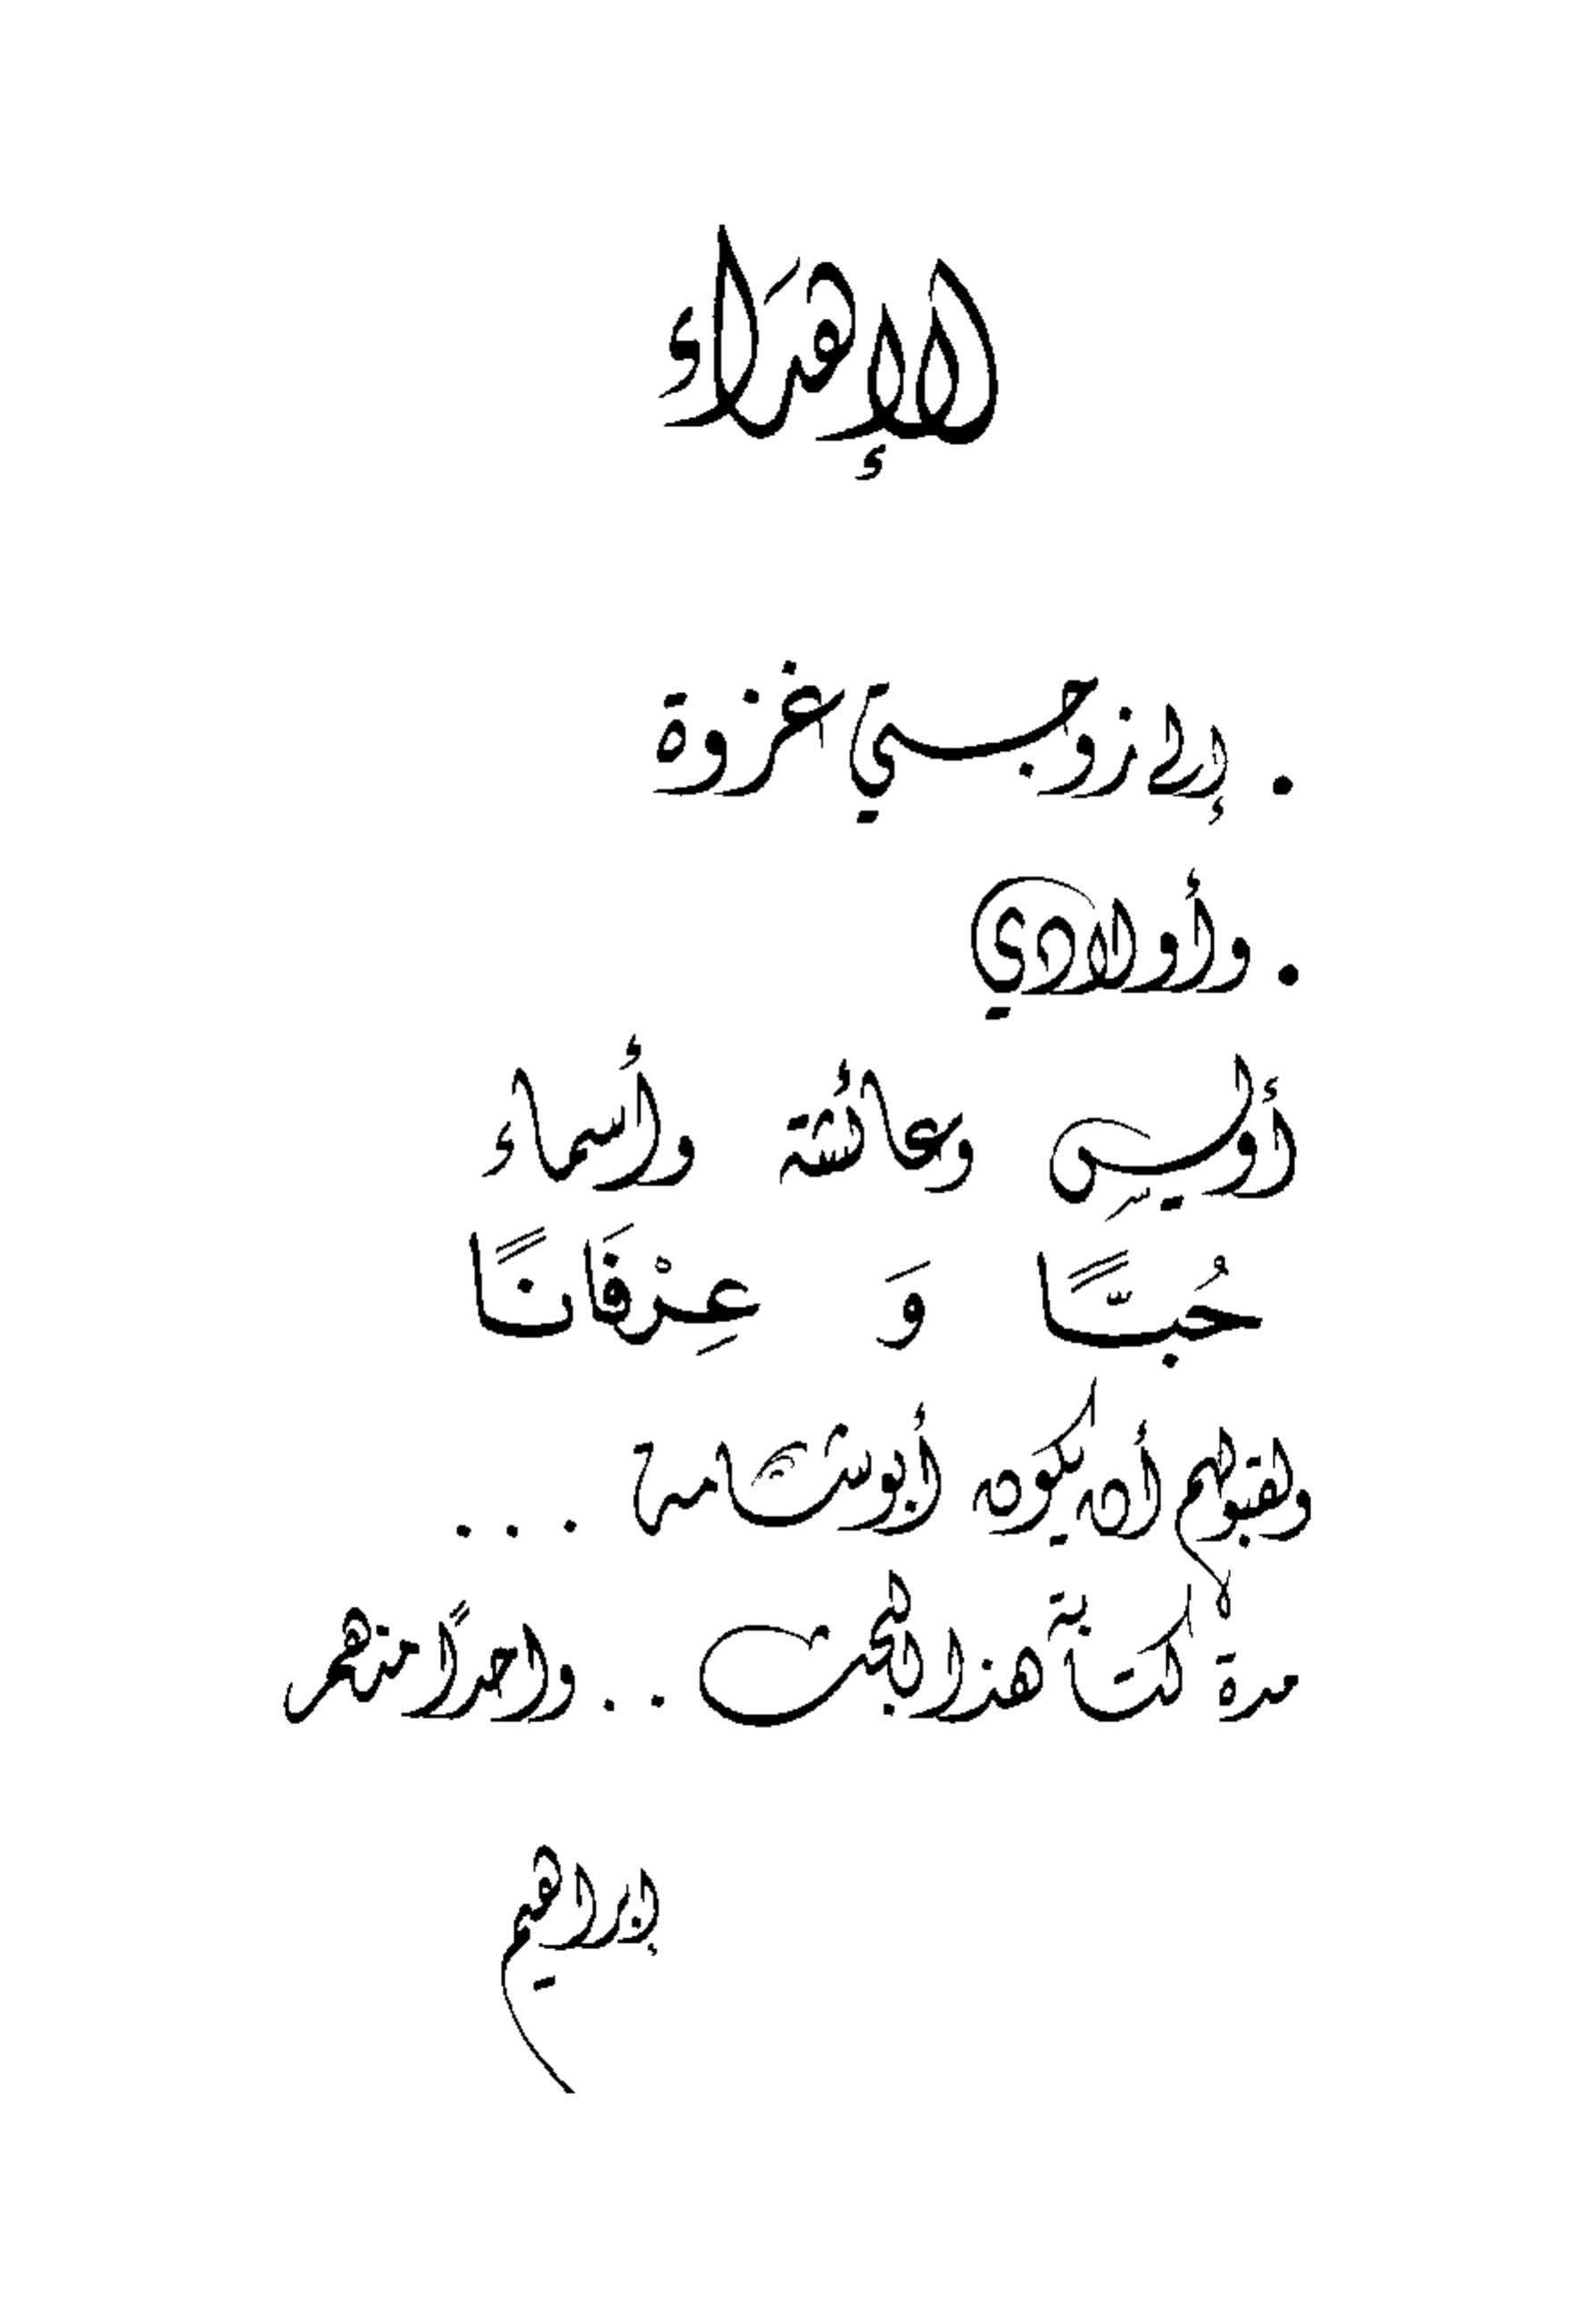 الإهداء
• إلى زوجتي غزوة
• وأولادي
أويس وعائشة وأسماء
حُبًّا وَ عِرْفَانًا
ولقبولهم أن يكون أبو شامة . . .
مدة كتابة هذا البحث . . واحدًا منهم
إبراهيم